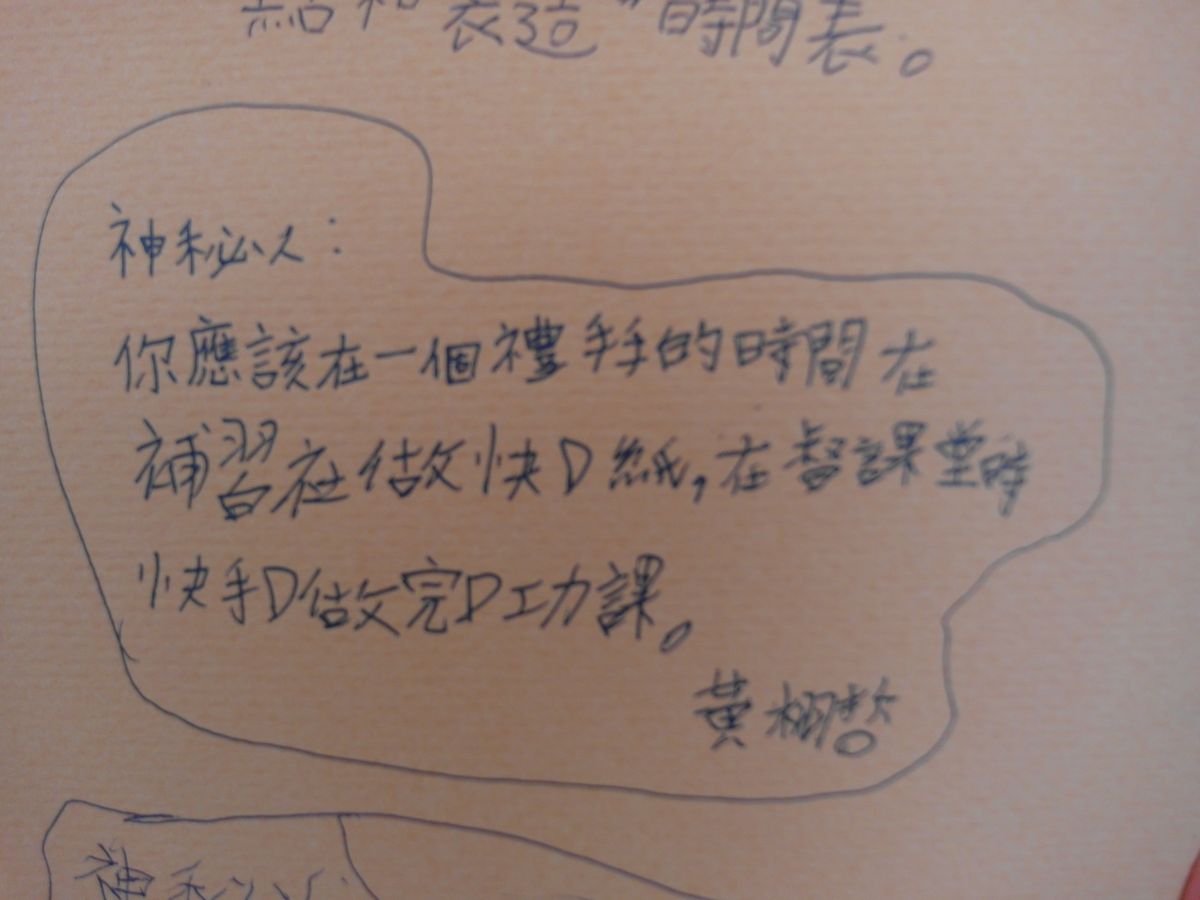 給和"表造"時間表。
神秘人：
你應該在一個禮手手的時間在
補習社做快D紙，在督課堂時
快手D做完D功課。
黃栩哲
神秘人：